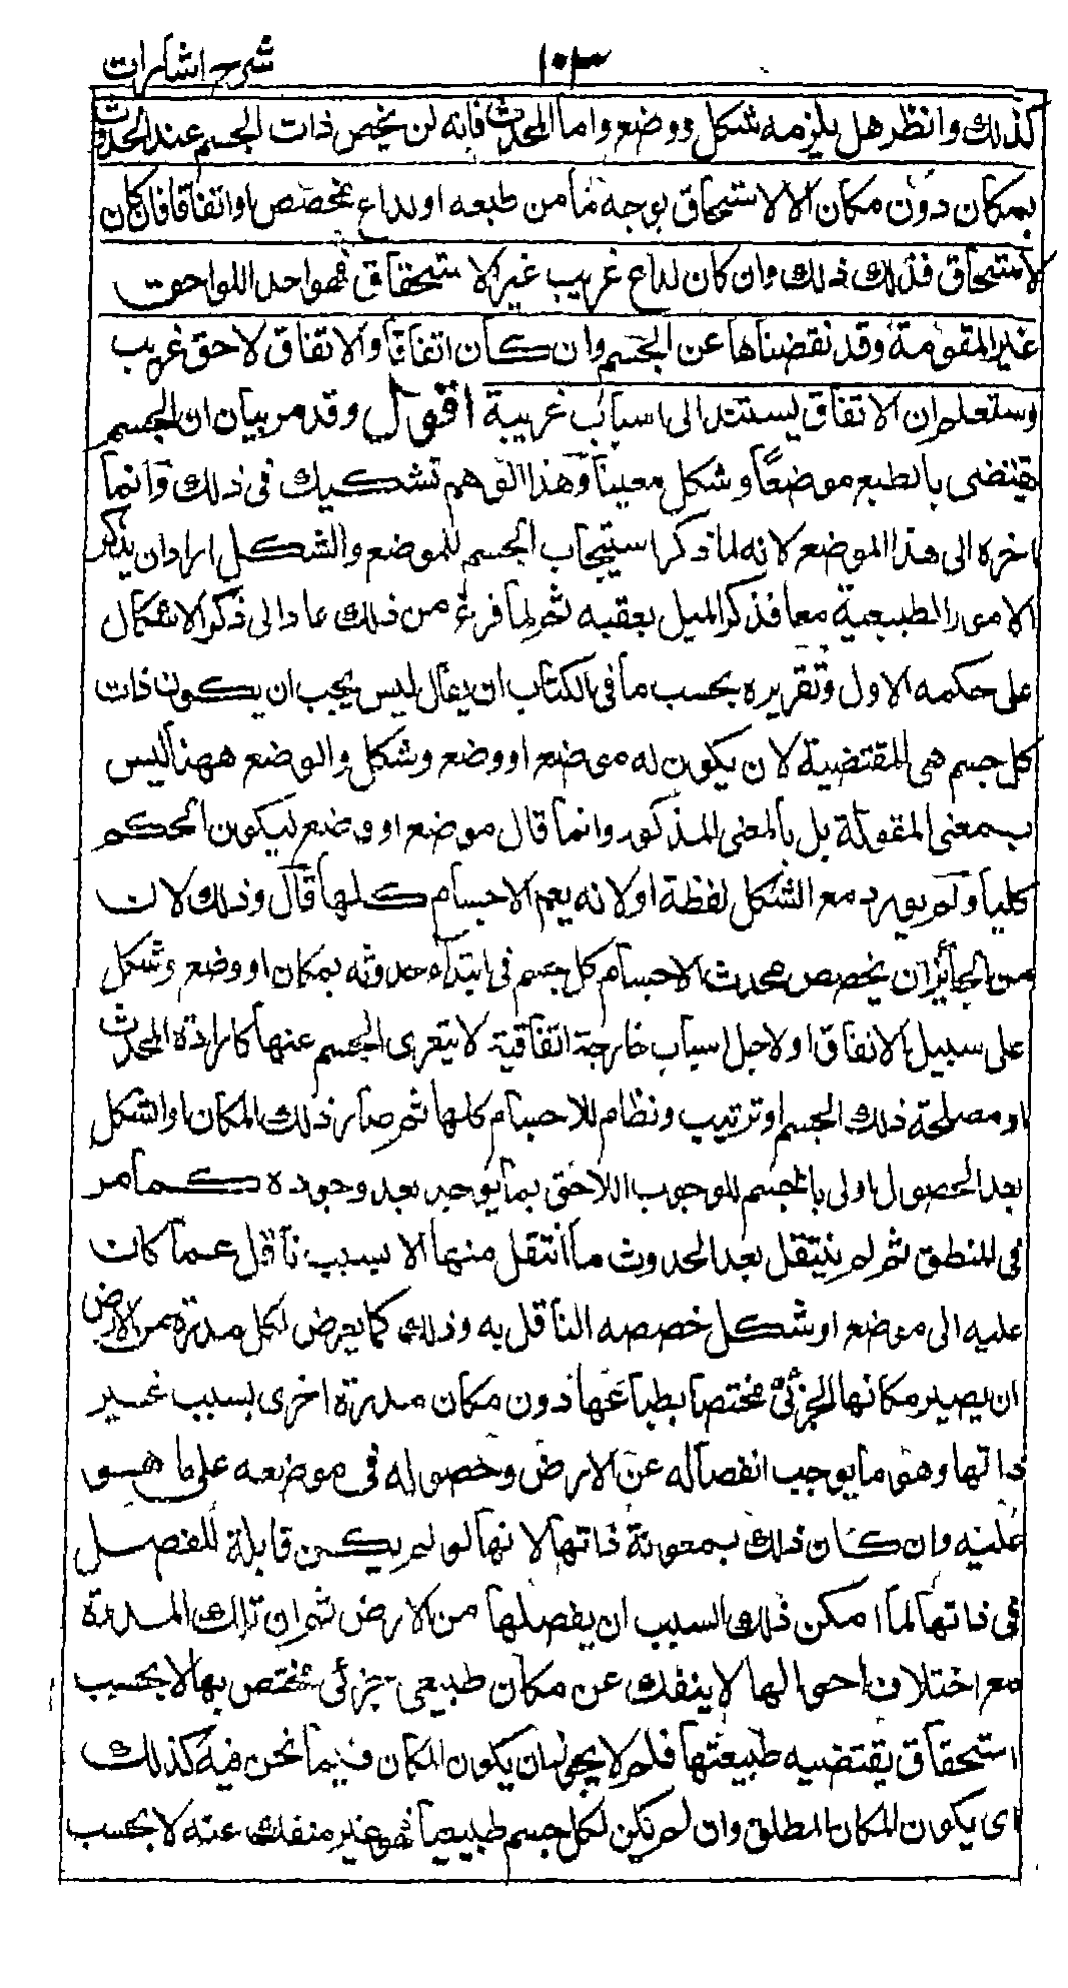 شرح اشارات
١٠٣
كذلك وانظر هل يلزمه شكل ووضع واما المحدث فانه لن يخص ذات الجسم عند الحدوث
بمكان دون مكان الا لاستحقاق بوجه ما من طبعه او لداع مخصص او اتفاقا فان كان
لاستحقاق فذلك ذلك وان كان لداع غريب غير الاستحقاق فهو احد اللواحق
غير المقومة وقد نفضناها عن الجسم وان كان اتفاقا والاتفاق لاحق غريب
وستعلم ان الاتفاق يستند الى اسباب غريبة اقول وقد مر بيان ان الجسم
يقتضى بالطبع موضعا وشكل معينا وهذا الوهم تشكيك فى ذلك وانما
اخره الى هذا الموضع لانه لما ذكر استيجاب الجسم للموضع والشكل اراد ان يذكر
الامور الطبيعية معا فذكر الميل بعقبه ثم لما فرغ من ذلك عاد الى ذكر الاشكال
على حكمه الاول وتقريره بحسب ما فى الكتاب ان يقال ليس يجب ان يكون ذات
كل جسم هى المقتضية لان يكون له موضع او وضع وشكل والوضع ههنا ليس
بمعنى المقولة بل بالمعنى المذكور وانما قال موضع او وضع ليكون الحكم
كليا ولم يورد مع الشكل لفظة او لانه يعم الاجسام كلها قال وذلك لان
من الجائز ان يخصص محدث الاجسام كل جسم فى ابتداء حدوثه بمكان او وضع وشكل
على سبيل الاتفاق او لاجل اسباب خارجة اتفاقية لا يتعرى الجسم عنها كارادة المحدث
او مصلحة ذلك الجسم او ترتيب ونظام للاجسام كلها ثم صار ذلك المكان او الشكل
بعد الحصول اولى بالجسم للوجوب اللاحق بما يوجد بعد وجوده كما مر
فى المنطق ثم لم ينتقل بعد الحدوث ما انتقل منها الا بسبب ناقل عما كان
عليه الى موضع او شكل خصصه الناقل به وذلك كما يعرض لكل مدرة من الارض
ان يصير مكانها الجزئى مختصا بطباعها دون مكان مدرة اخرى بسبب غير
ذاتها وهو ما يوجب انفصاله عن الارض وحصوله فى موضعه على ما هو
عليه وان كان ذلك بمعونة ذاتها لانها لو لم يكن قابلة للفصل
فى ذاتها لما امكن ذلك السبب ان يفصلها من الارض ثم ان تلك المدرة
مع اختلاف احوالها لا ينفك عن مكان طبيعى جزئى مختص بها لا بحسب
استحقاق يقتضيه طبيعتها فلم لا يجوز ان يكون المكان فيما نحن فيه كذلك
اى يكون المكان المطلق وان لم تكن لكل جسم طبيعيا فهو غير منفك عنه لا بحسب